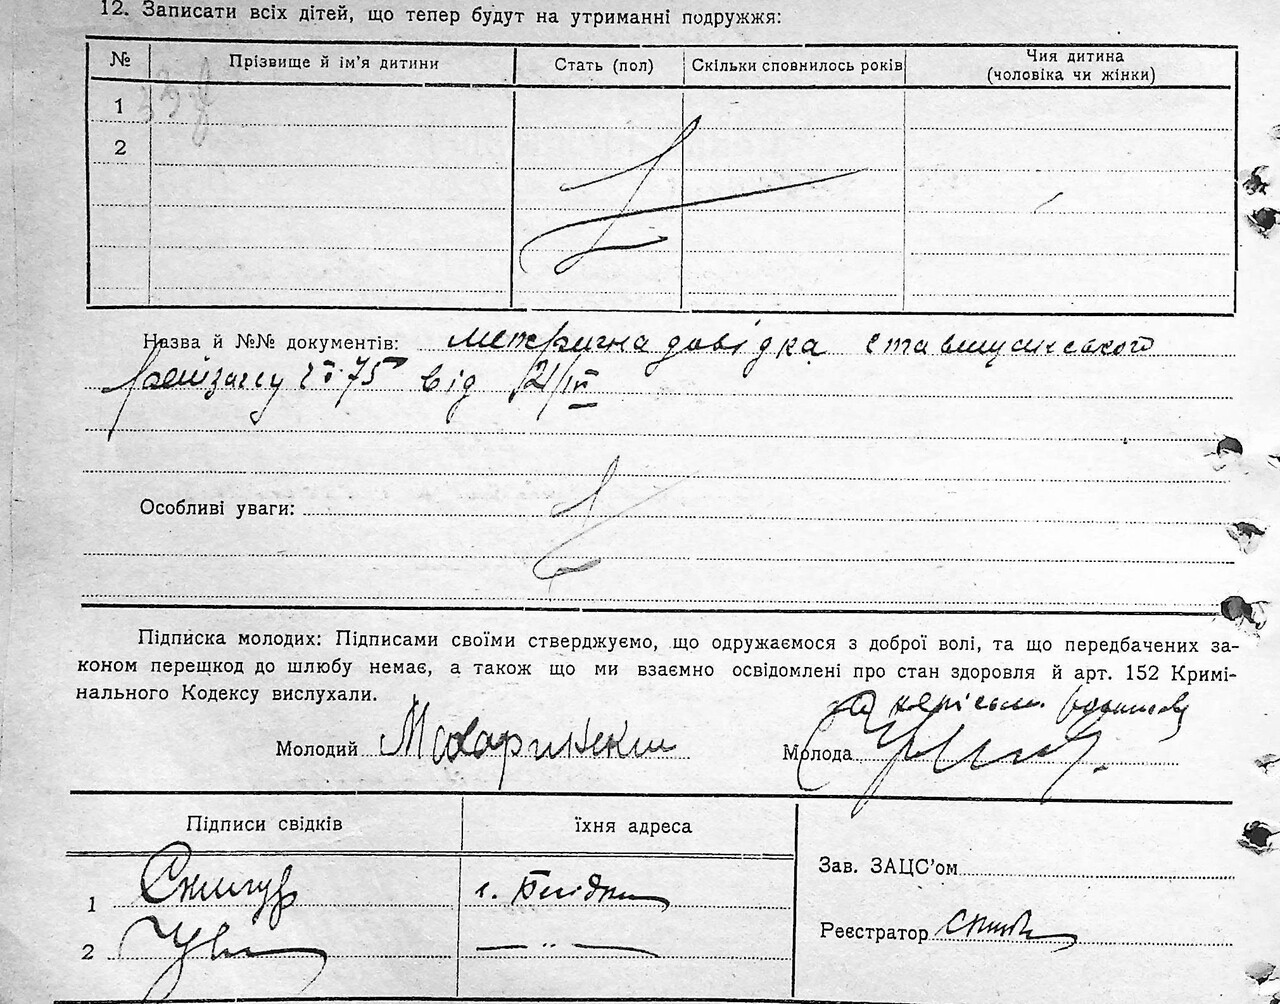 12. Записати всіх дітей, що тепер будут на утриманні подружжя:
№ Прізвище й ім'я дитини Стать (пол) Скільки сповнилось років Чия дитина
(чоловіка чи жінки)
1
2
Назва й №№ документів: метрична довідка ставищанського
райзагсу 75 від 21/IV
Особливі уваги:
Підписка молодих: Підписами своїми стверджуємо, що одружаємося з доброї волі, та що передбачених за-
коном перешкод до шлюбу немає, а також що ми взаємно освідомлені про стан здоровля й арт. 152 Кримі-
нального Кодексу вислухали.
за
Молодий Молода
Підписи свідків їхня адреса
Зав. ЗАЦС'ом
1 с.
2 — „ —
Реєстратор